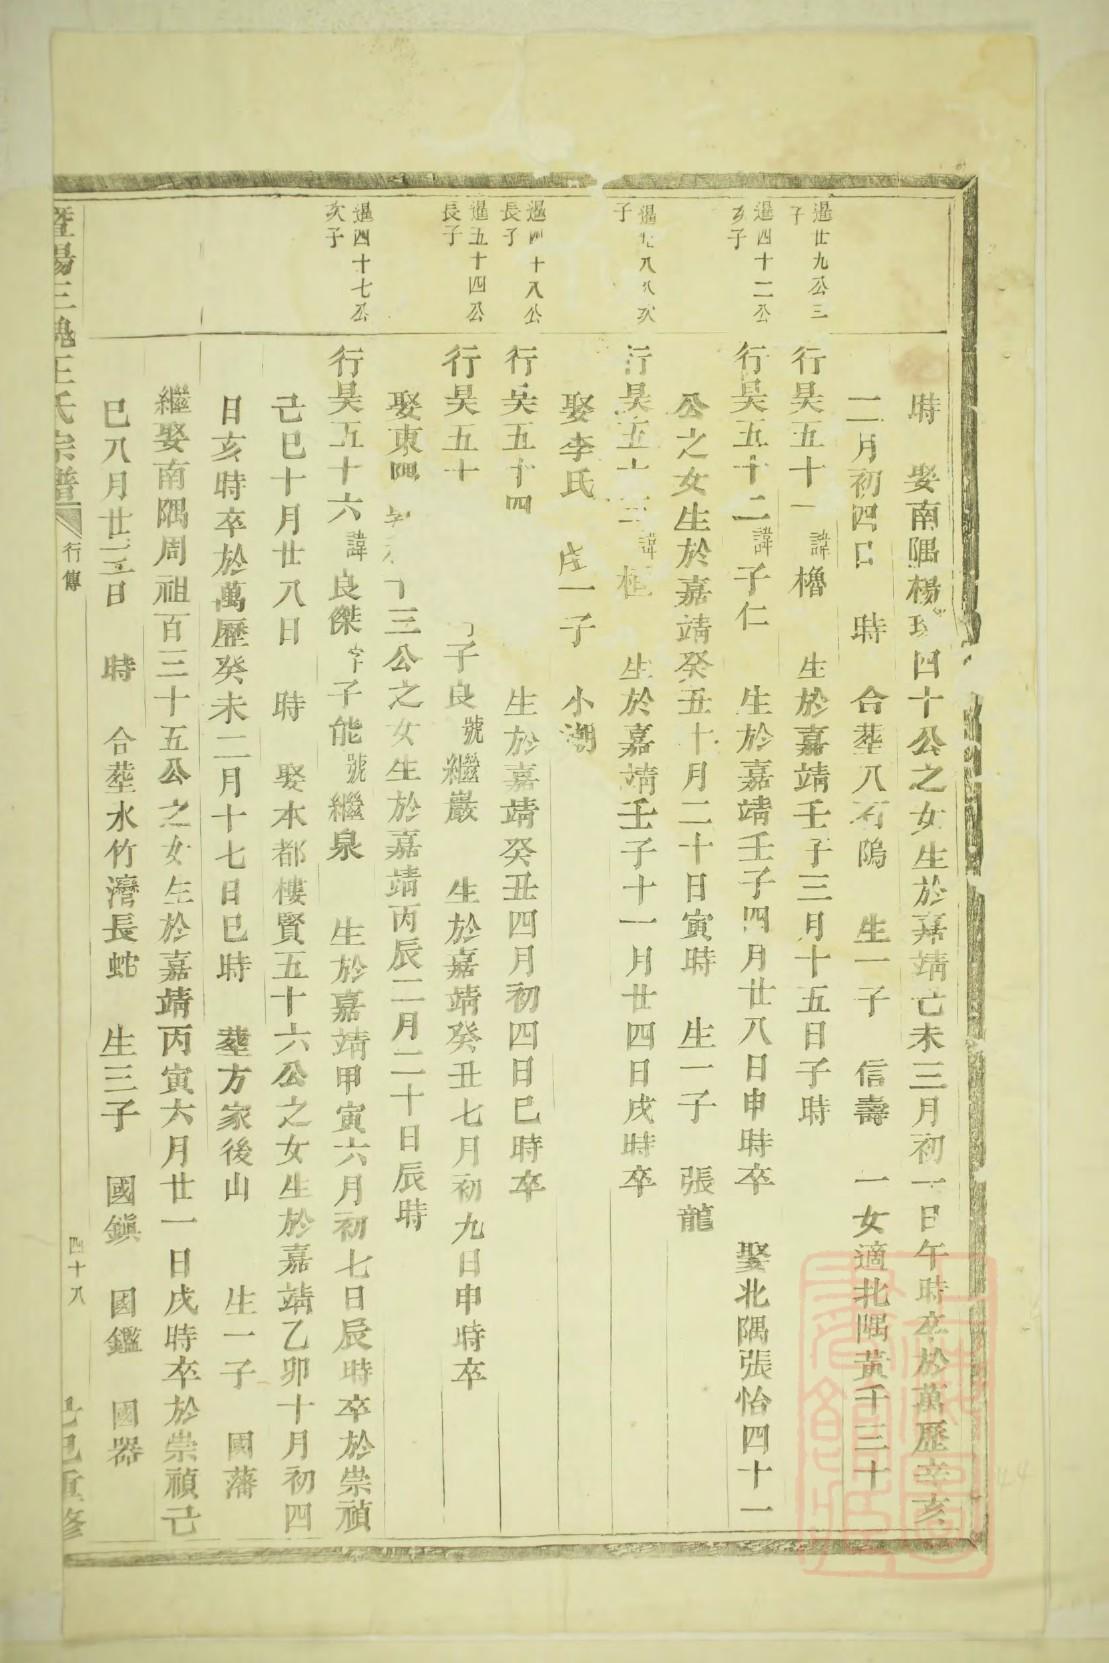 時 娶南隅楊 四十公之女生於嘉靖己未三月初一日午時卒於萬歷辛亥
二月初四日 時 合塟八石隖 生一子 信壽 一女適北隅黃千三十
暹廿九公三子
行昊五十一諱櫓 生於嘉靖壬子三月十五日子時
暹四十二公次子
行昊五十二諱子仁 生於嘉靖壬子四月廿八日申時卒 娶北隅張怡四十一
公之女生於嘉靖癸丑十月二十日寅時 生一子 張龍
行昊五十三諱 生於嘉靖壬子十一月廿四日戌時卒
娶李氏 一子 小潮
暹四十八公長子
行昊五十四 生於嘉靖癸丑四月初四日巳時卒
暹五十四公長子
行昊五十 子良號繼巖 生於嘉靖癸丑七月初九日申時卒
娶東隅 十三公之女生於嘉靖丙辰二月二十日辰時
暹四十七公次子
行昊五十六諱良傑字子能號繼泉 生於嘉靖甲寅六月初七日辰時卒於崇禎
己巳十月廿八日 時 娶本都樓賢五十六公之女生於嘉靖乙卯十月初四
日亥時卒於萬歷癸未二月十七日巳時 塟方家後山 生一子 國藩
繼娶南隅周祖百三十五公之女生於嘉靖丙寅六月廿一日戌時卒於崇禎己
巳八月廿三日 時 合塟水竹灣長蛇 生三子 國鎭 國鑑 國器
暨陽三槐王氏宗譜 行傳 四十八 己巳重修